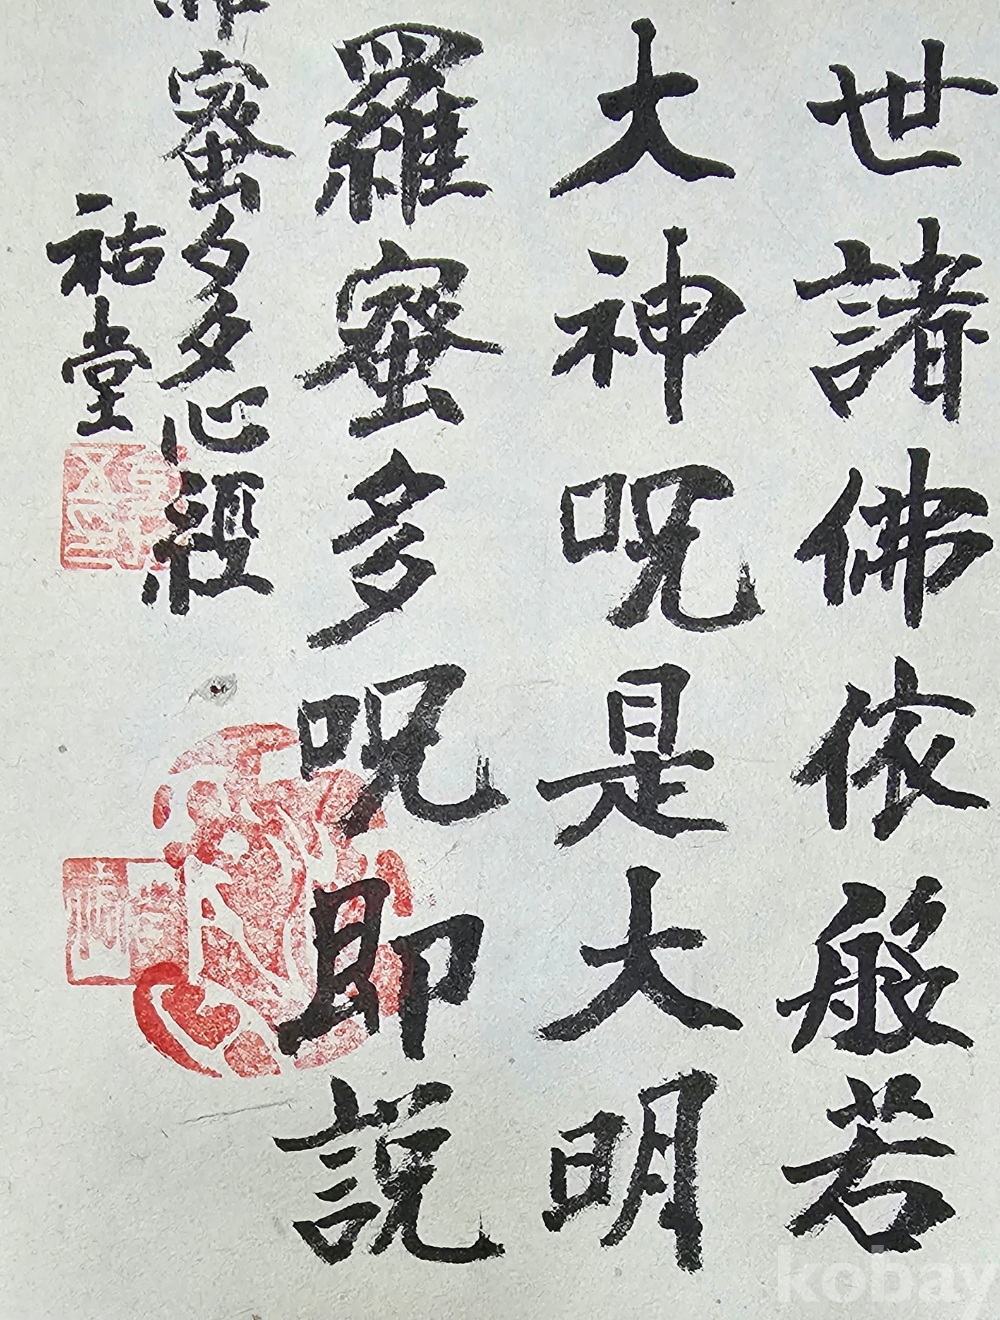 世諸佛依般若
大神呪是大明
羅蜜多呪即説
蜜多心経
祐堂
kobay